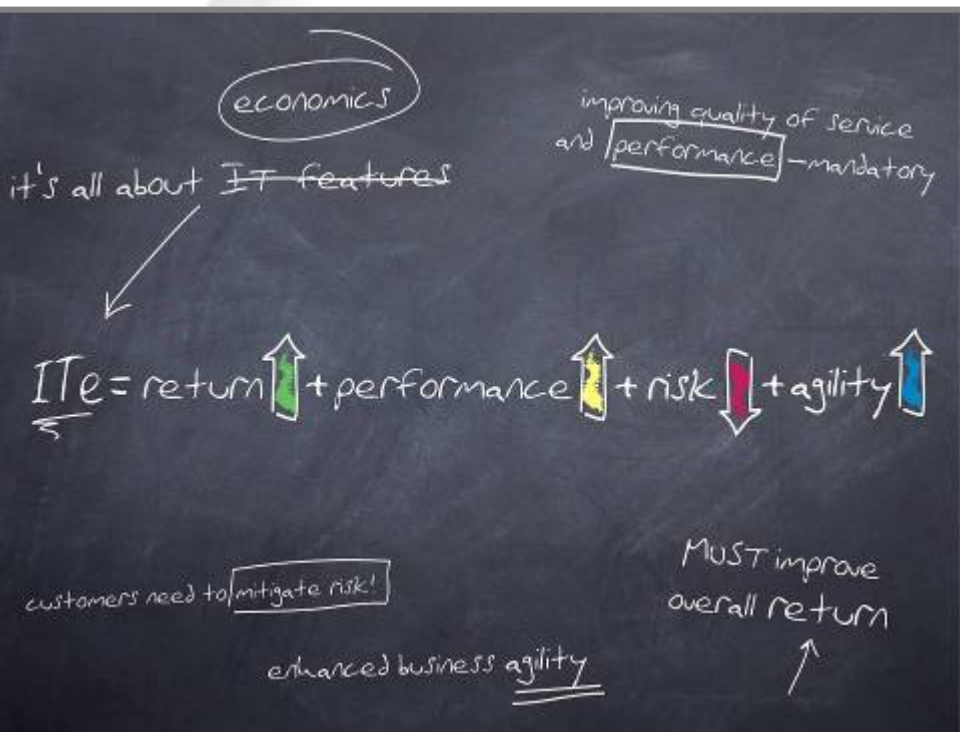 economics
it's all about IT features
improving quality of service
and performance - mandatory
ITe = return + performance + risk + agility
customers need to mitigate risk!
enhanced business agility
MUST improve
overall return